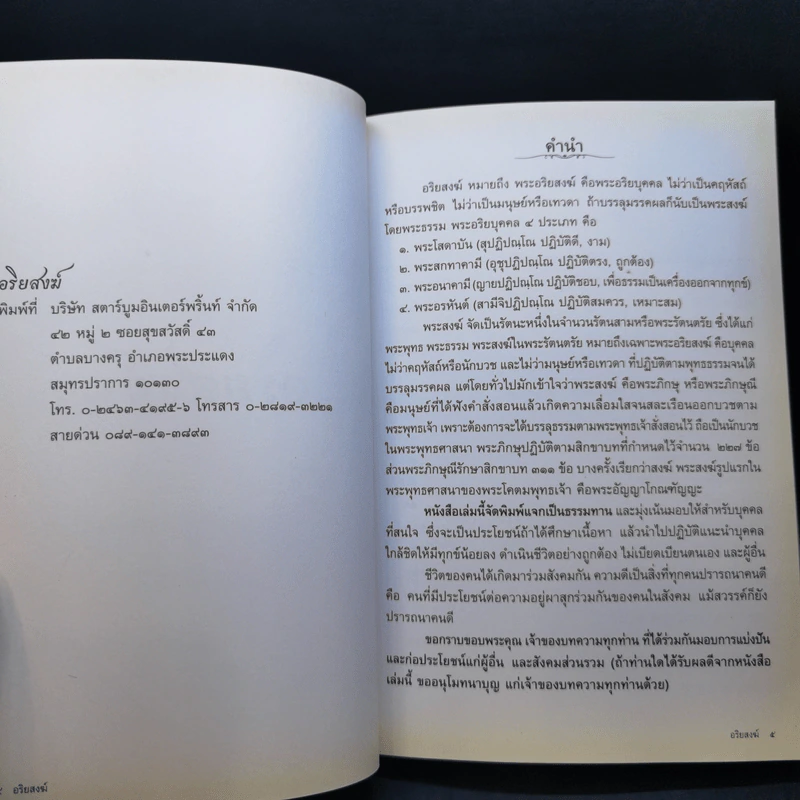 อริยสงฆ์
พิมพ์ที่ บริษัท สตาร์บูมอินเตอร์พริ้นท์ จำกัด
๔๒ หมู่ ๒ ซอยสุขสวัสดิ์ ๔๓
ตำบลบางครุ อำเภอพระประแดง
สมุทรปราการ ๑๐๑๓๐
โทร. ๐-๒๔๖๓-๔๑๙๕-๖ โทรสาร ๐-๒๘๑๙-๓๒๒๑
สายด่วน ๐๘๙-๑๔๑-๓๘๙๓
อริยสงฆ์
คำนำ
อริยสงฆ์ หมายถึง พระอริยสงฆ์ คือพระอริยบุคคล ไม่ว่าเป็นคฤหัสถ์
หรือบรรพชิต ไม่ว่าเป็นมนุษย์หรือเทวดา ถ้าบรรลุมรรคผลก็นับเป็นพระสงฆ์
โดยพระธรรม พระอริยบุคคล ๔ ประเภท คือ
๑. พระโสดาบัน (สุปฏิปณฺโณ ปฏิบัติดี, งาม)
๒. พระสกทาคามี (อุชุปฏิปณฺโณ ปฏิบัติตรง, ถูกต้อง)
๓. พระอนาคามี (ญายปฏิปณฺโณ ปฏิบัติชอบ, เพื่อธรรมเป็นเครื่องออกจากทุกข์)
๔. พระอรหันต์ (สามีจิปฏิปณฺโณ ปฏิบัติสมควร, เหมาะสม)
พระสงฆ์ จัดเป็นรัตนะหนึ่งในจำนวนรัตนสามหรือพระรัตนตรัย ซึ่งได้แก่
พระพุทธ พระธรรม พระสงฆ์ในพระรัตนตรัย หมายถึงเฉพาะพระอริยสงฆ์ คือบุคคล
ไม่ว่าคฤหัสถ์หรือนักบวช และไม่ว่ามนุษย์หรือเทวดา ที่ปฏิบัติตามพุทธธรรมจนได้
บรรลุมรรคผล แต่โดยทั่วไปมักเข้าใจว่าพระสงฆ์ คือพระภิกษุ หรือพระภิกษุณี
คือมนุษย์ที่ได้ฟังคำสั่งสอนแล้วเกิดความเลื่อมใสจนสละเรือนออกบวชตาม
พระพุทธเจ้า เพราะต้องการจะได้บรรลุธรรมตามพระพุทธเจ้าสั่งสอนไว้ ถือเป็นนักบวช
ในพระพุทธศาสนา พระภิกษุปฏิบัติตามสิกขาบทที่กำหนดไว้จำนวน ๒๒๗ ข้อ
ส่วนพระภิกษุณีรักษาสิกขาบท ๓๑๑ ข้อ บางครั้งเรียกว่าสงฆ์ พระสงฆ์รูปแรกใน
พระพุทธศาสนาของพระโคตมพุทธเจ้า คือพระอัญญาโกณฑัญญะ
หนังสือเล่มนี้จัดพิมพ์แจกเป็นธรรมทาน และมุ่งเน้นมอบให้สำหรับบุคคล
ที่สนใจ ซึ่งจะเป็นประโยชน์ถ้าได้ศึกษาเนื้อหา แล้วนำไปปฏิบัติแนะนำบุคคล
ใกล้ชิดให้มีทุกข์น้อยลง ดำเนินชีวิตอย่างถูกต้อง ไม่เบียดเบียนตนเอง และผู้อื่น
ชีวิตของคนได้เกิดมาร่วมสังคมกัน ความดีเป็นสิ่งที่ทุกคนปรารถนาคนดี
คือ คนที่มีประโยชน์ต่อความอยู่ผาสุกร่วมกันของคนในสังคม แม้สวรรค์ก็ยัง
ปรารถนาคนดี
ขอกราบขอบพระคุณ เจ้าของบทความทุกท่าน ที่ได้ร่วมกันมอบการแบ่งปัน
และก่อประโยชน์แก่ผู้อื่น และสังคมส่วนรวม (ถ้าท่านใดได้รับผลดีจากหนังสือ
เล่มนี้ ขออนุโมทนาบุญ แก่เจ้าของบทความทุกท่านด้วย)
อริยสงฆ์ ๕